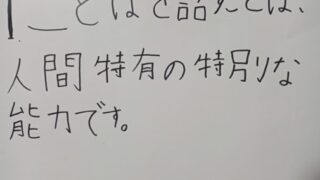 ことばを話すことは、
人間特有の特別な
能力です。